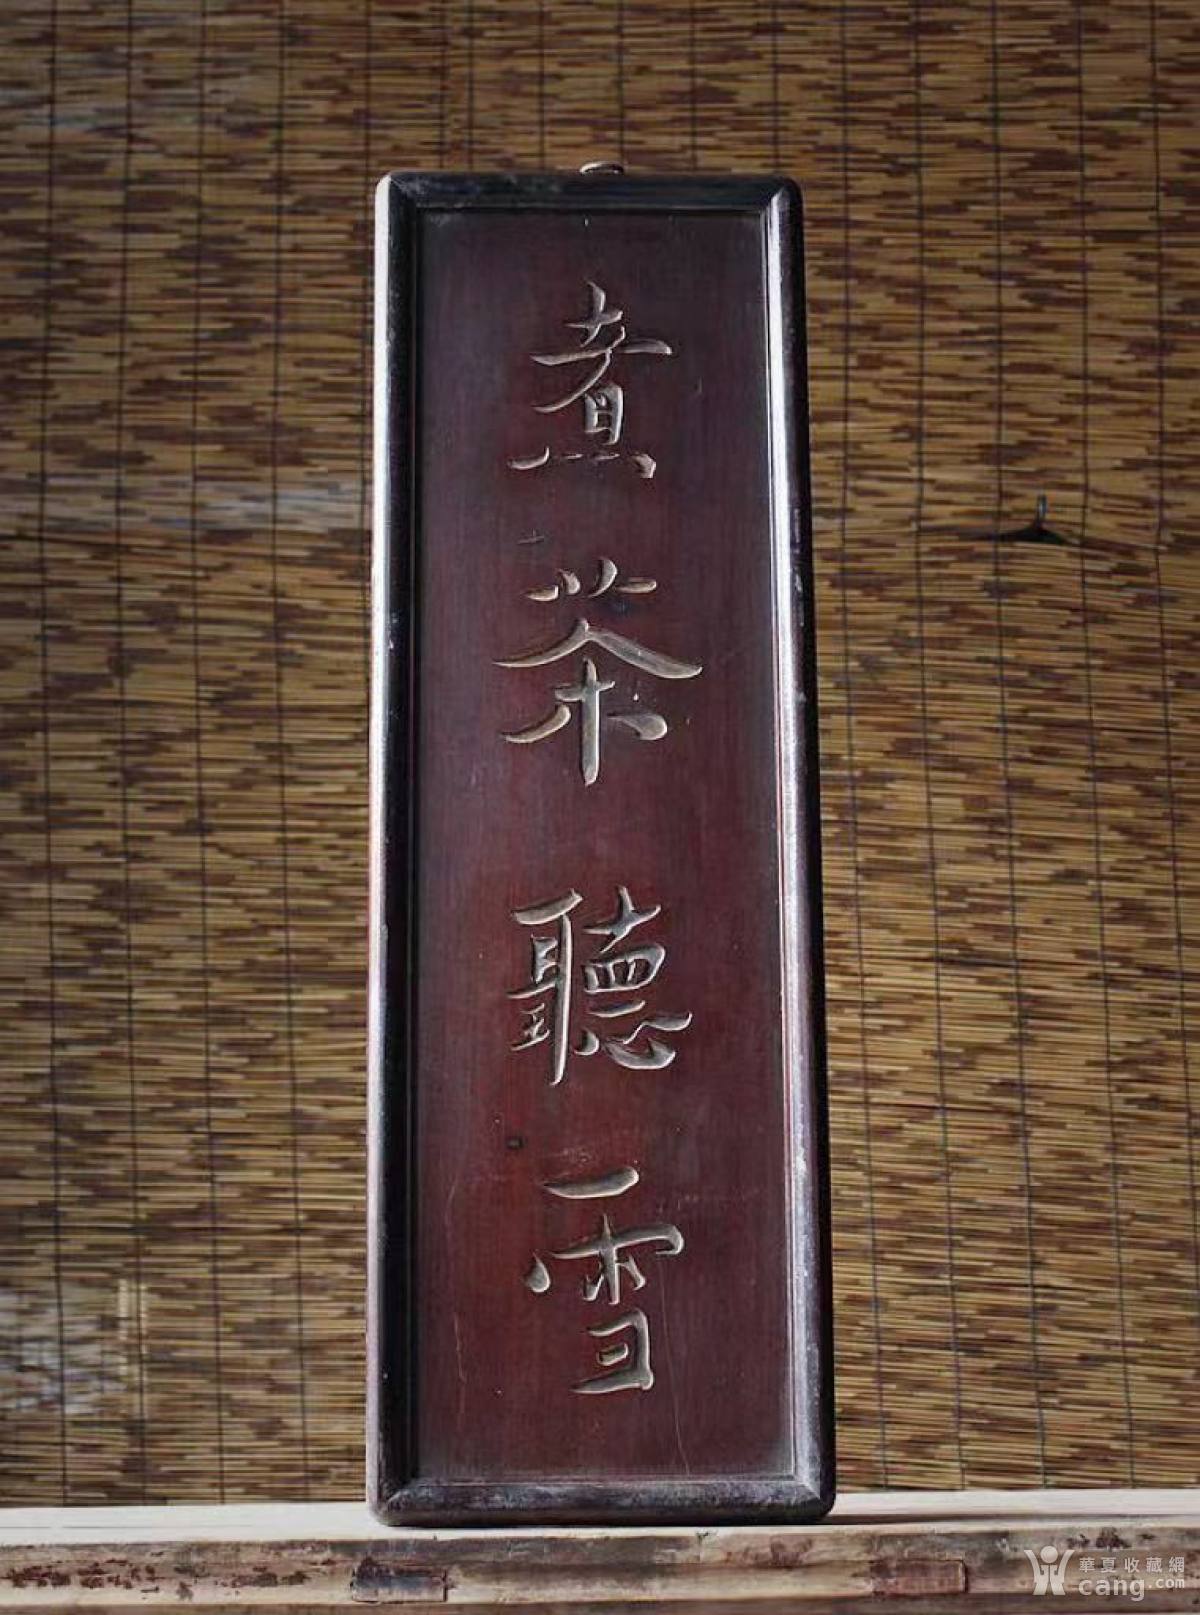 煮茶聽雪
華夏收藏網
cang.com